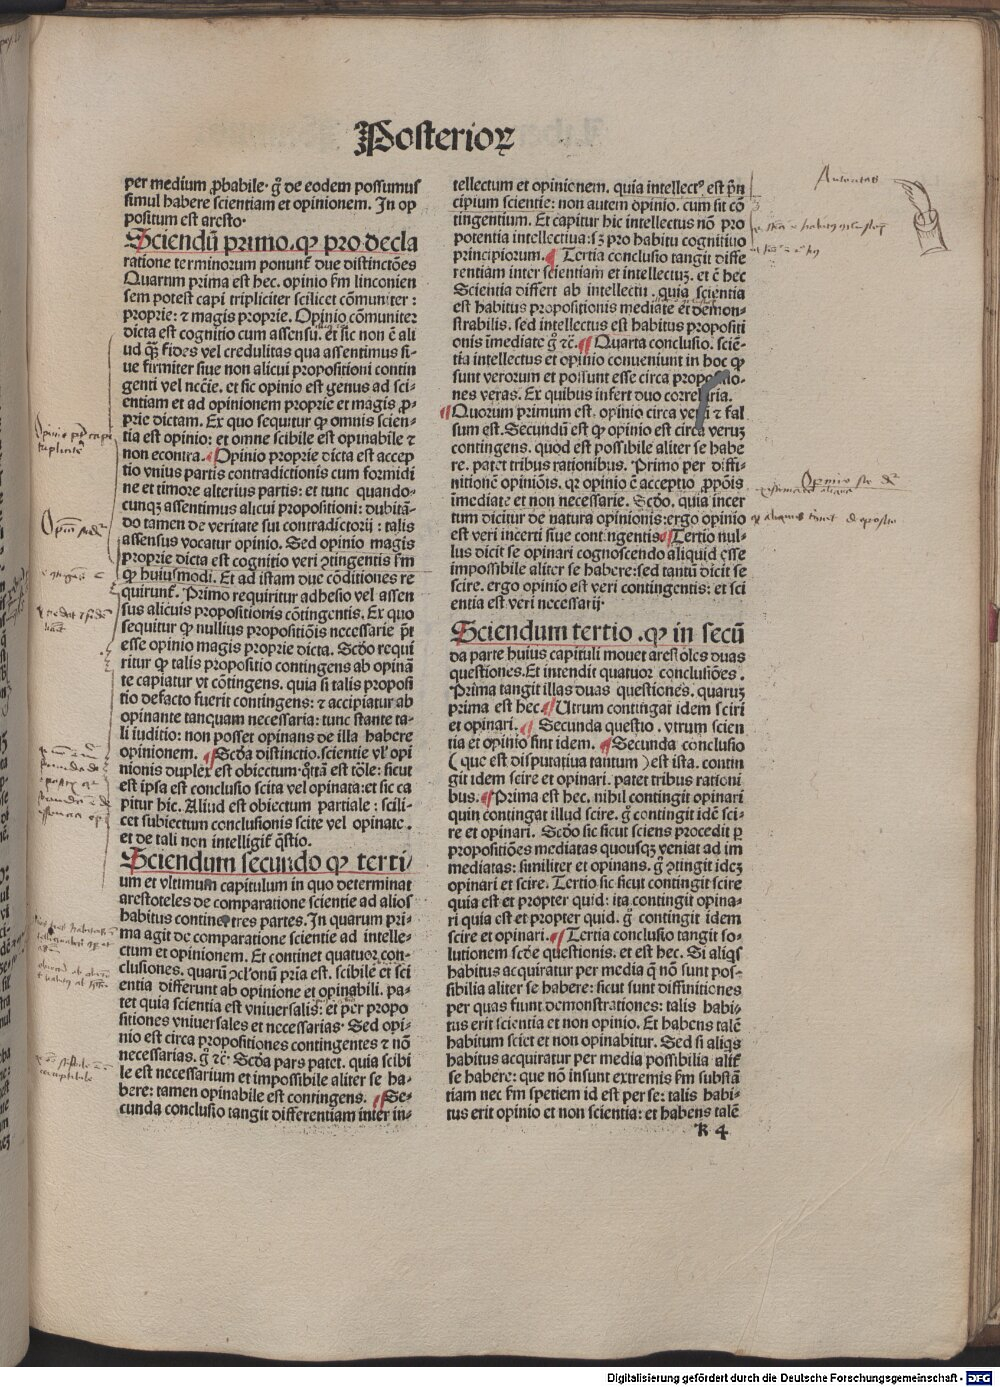 Posterioꝝ
per medium ꝓbabile. gͦ de eodem possumus
simul habere scientiam et opinionem. In op
positum est aresto.
Sciendū primo. ꝙ pro decla
ratione terminorum ponunt᷑ due distinctōes
Quarum prima est hec. opinio ẜm linconien
sem potest capi tripliciter scilicet cōmuniter:
proprie: ⁊ magis proprie. Opinio cōmuniter
dicta est cognitio cum assensu. et sic non ē ali
ud qꝫ̄ fides vel credulitas qua assentimus si⸗
ue firmiter siue non alicui propositioni contin
genti vel nccīe. et sic opinio est genus ad sci⸗
entiam et ad opinionem proprie et magis ꝓ⸗
prie dictam. Ex quo sequitur ꝙ omnis scien⸗
tia est opinio: et omne scibile est opinabile ⁊
non econtra. ¶ Opinio proprie dicta est accep
tio vnius partis contradictionis cum formidi
ne et timore alterius partis: et tunc quando⸗
cunqꝫ assentimus alicui propositioni: dubitā⸗
do tamen de veritate sui contradictorij: talis
assensus vocatur opinio. Sed opinio magis
proprie dicta est cognitio veri ꝯtingentis ẜm
ꝙ huiusmodi. Et ad istam due cōditiones re
quirunt᷑. Primo requiritur adhesio vel assen
sus alicuis propositionis cōtingentis. Ex quo
sequitur ꝙ nullius propositiōis necessarie pōt
esse opinio magis proprie dicta. Scďo requi
ritur ꝙ talis propositio contingens ab opinā
te capiatur vt cōtingens. quia si talis proposi
tio defacto fuerit contingens: ⁊ accipiatur ab
opinante tanquam necessaria: tunc stante ta⸗
li iuditio: non posset opinans de illa habere
opinionem. ¶ Scďa distinctio. scientie vl̓ opi
nionis duplex est obiectum. qďdā est tōle: sicut
est ipsa est conclusio scita vel opinata: et sic ca
pitur hic. Aliud est obiectum partiale: scili⸗
cet subiectum conclusionis scite vel opinate.
et de tali non intelligit᷑ q̄stio.
Sciendum secundo ꝙ terti⸗
um et vltimum capitulum in quo determinat
arestoteles de comparatione scientie ad alios
habitus continet tres partes. In quarum pri⸗
ma agit de comparatione scientie ad intelle⸗
ctum et opinionem. Et continet quatuor con⸗
clusiones. quarū ꝯclōnū pria est. scibile et sci
entia differunt ab opinione et opinabili. pa⸗
tet quia scientia est vniuersalis: et per propo
sitiones vniuersales et necessarias. Sed opi⸗
nio est circa propositiones contingentes ⁊ nō
necessarias. gͦ ⁊c̄. Scďa pars patet. quia scibi
le est necessarium et impossibile aliter se ha⸗
bere: tamen opinabile est contingens. ¶ Se⸗
cunda conclusio tangit differentiam inter in⸗
tellectum et opinionem. quia intellectꝰ est pn̄
cipium scientie: non autem opinio. cum sit cō
tingentium. Et capitur hic intellectus nō pro
potentia intellectiua: sꝫ pro habitu cognitiuo
principiorum. ¶ Tertia conclusio tangit diffe
rentiam inter scientiam et intellectuꝫ. et ē hec
Scientia differt ab intellectu. quia scientia
est habitus propositionis mediate et demon⸗
strabilis. sed intellectus est habitus propositi
onis īmediate gͦ ⁊c̄. ¶ Quarta conclusio. sciē⸗
tia intellectus et opinio conueniunt in hoc ꝙ
sunt verorum et possunt esse circa propositio⸗
nes veras. Ex quibus infert duo correlaria.
¶ Quorum primum est. opinio circa veri ⁊ fal
sum est. Secundū est ꝙ opinio est circa veruꝫ
contingens. quod est possibile aliter se habe
re. patet tribus rationibus. Primo per diffi⸗
nitionē opiniōis. qꝛ opinio ē acceptio ꝓpōis
īmediate et non necessarie. Scďo. quia incer
tum dicitur de natura opinionis: ergo opinio
est veri incerti siue contingentis. ¶ Tertio nul⸗
lus dicit se opinari cognoscendo aliquid esse
impossibile aliter se habere: sed tantū dicit se
scire. ergo opinio est veri contingentis: et sci
entia est veri necessarij.
Sciendum tertio. ꝙ in secū
da parte huius capituli mouet arestōles duas
questiones. Et intendit quatuor conclusiōes.
Prima tangit illas duas questiones. quaruꝫ
prima est hec. ¶ Utrum contingat idem sciri
et opinari. ¶ Secunda questio. vtrum scien
tia et opinio sint idem. ¶ Secunda conclusio
(que est disputatiua tantum) est ista. contin
git idem scire et opinari. patet tribus rationi
bus. ¶ Prima est hec. nihil contingit opinari
quin contingat illud scire. gͦ contingit idē sci⸗
re et opinari. Scďo sic sicut sciens procedit ꝑ
propositiōes mediatas quousqꝫ veniat ad im
mediatas: similiter et opinans. gͦ ꝯtingit ideꝫ
opinari et scire. Tertio sic sicut contingit scire
quia est et propter quid: ita contingit opina⸗
ri quia est et propter quid. gͦ contingit idem
scire et opinari. ¶ Tertia conclusio tangit so⸗
lutionem scďe questionis. et est hec. Si aliqs
habitus acquiratur per media q̄ nō sunt pos⸗
sibilia aliter se habere: sicut sunt diffinitiones
per quas fiunt demonstrationes: talis habi⸗
tus erit scientia et non opinio. Et habens talē
habitum sciet et non opinabitur. Sed si aliqs
habitus acquiratur per media possibilia alit᷑
se habere: que nō insunt extremis ẜm substā
tiam nec ẜm spetiem id est per se: talis habi⸗
tus erit opinio et non scientia: et habens talē
k 4
Digitalisierung gefördert durch die Deutsche Forschungsgemeinschaft - DFG